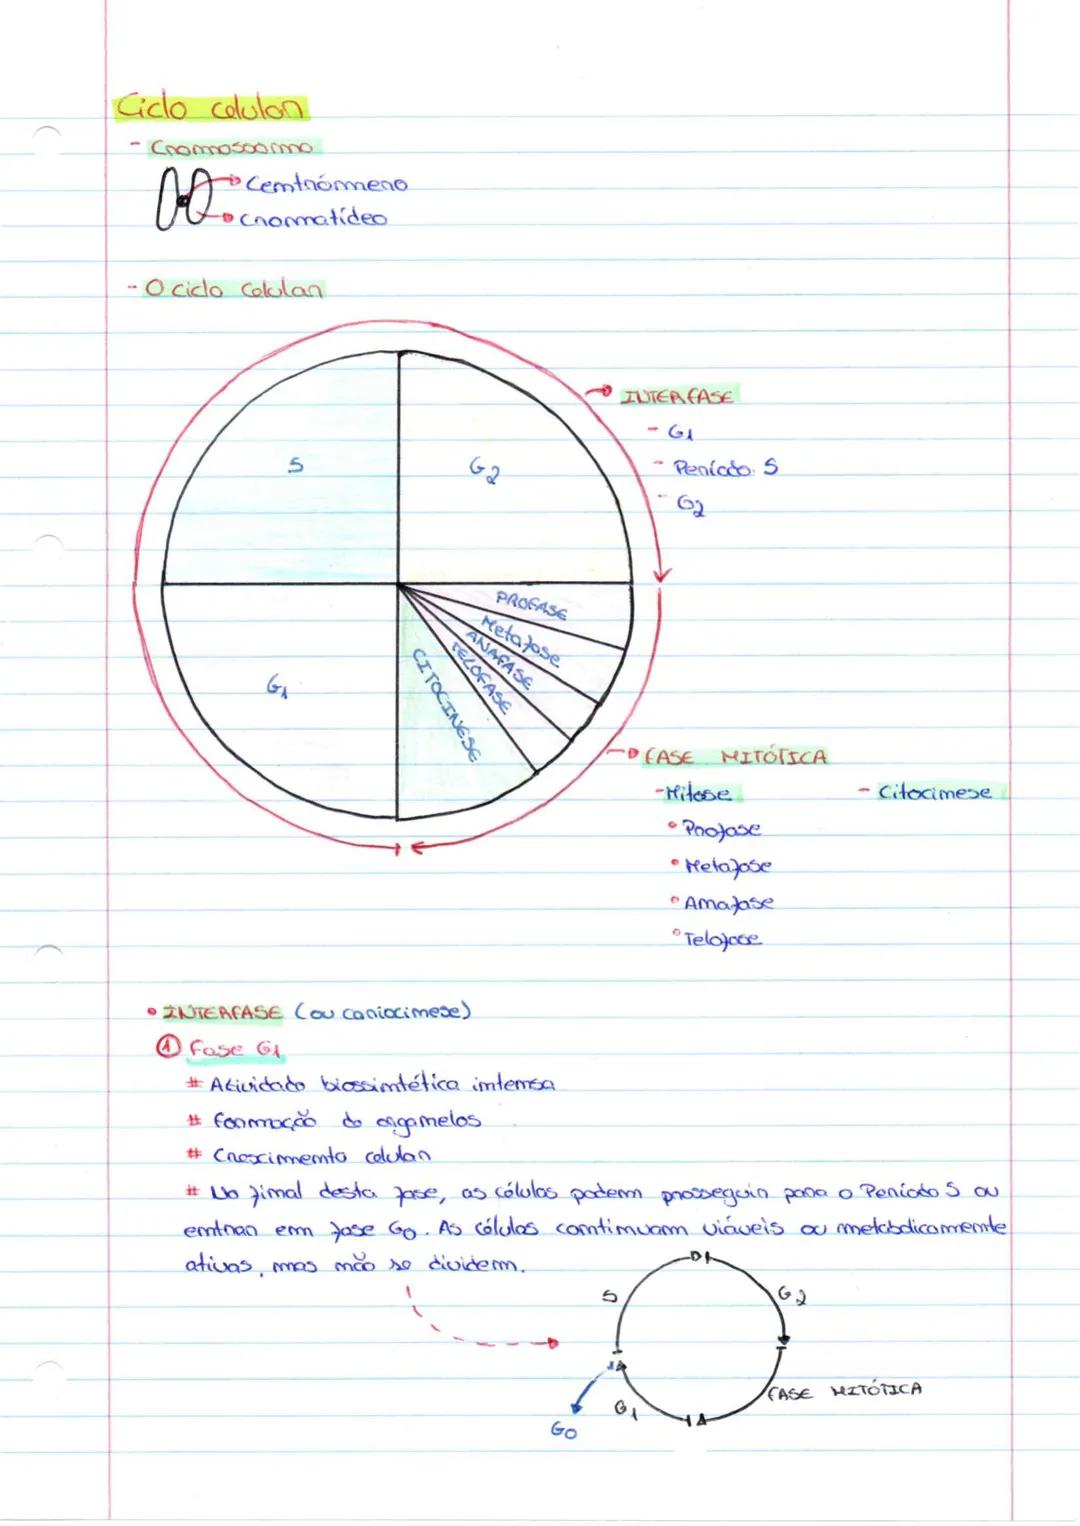 Ciclo celular
- Cromossomo
Centrómero
cromatídeo
- O ciclo Celular
S
G2
INTERFASE
- G1
- Período S
- G2
PROFASE
Metafase
ANAFASE
TELOFASE
CITOCINESE
G1
FASE MITÓTICA
- Mitose
- Citocinese
• Profase
• Metafase
• Anafase
• Telofase
• INTERFASE (ou cariocinese)
① Fase G1
# Atividade biossintética intensa
# Formação de organelos
# Crescimento celular
# No final desta fase, as células podem prosseguir para o Período S ou
entrar em fase G0. As células continuam viáveis ou metabolicamente
ativas, mas não se dividem.
S
G2
G1
FASE MITÓTICA
G0